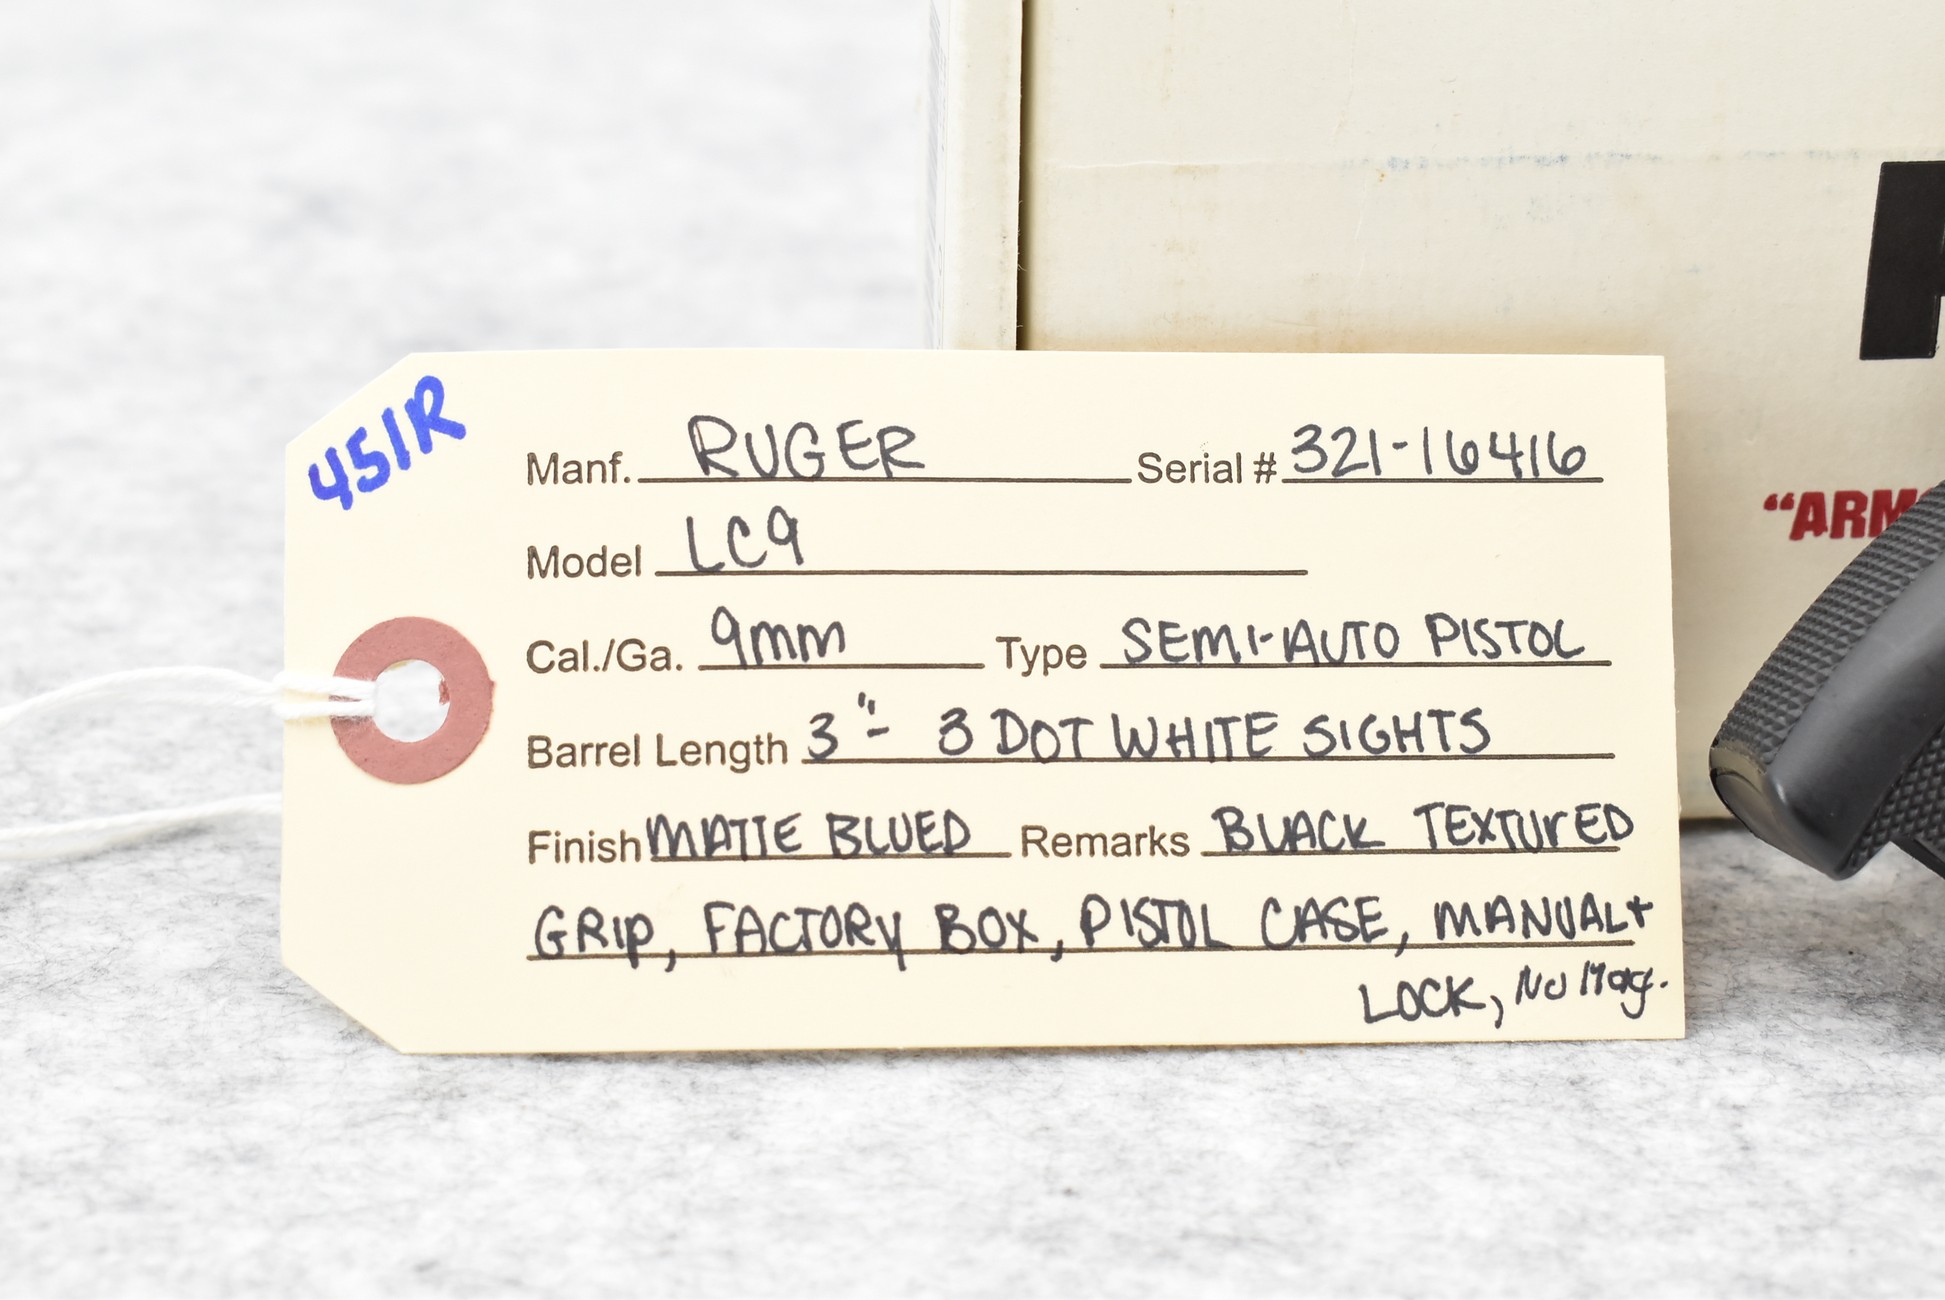 451R
Manf. RUGER Serial # 321-16416
Model LC9
Cal./Ga. 9mm Type SEMI-AUTO PISTOL
Barrel Length 3"- 3 DOT WHITE SIGHTS
Finish MATTE BLUED Remarks BLACK TEXTURED
GRIP, FACTORY BOX, PISTOL CASE, MANUAL +
LOCK, No Mag.
"ARM